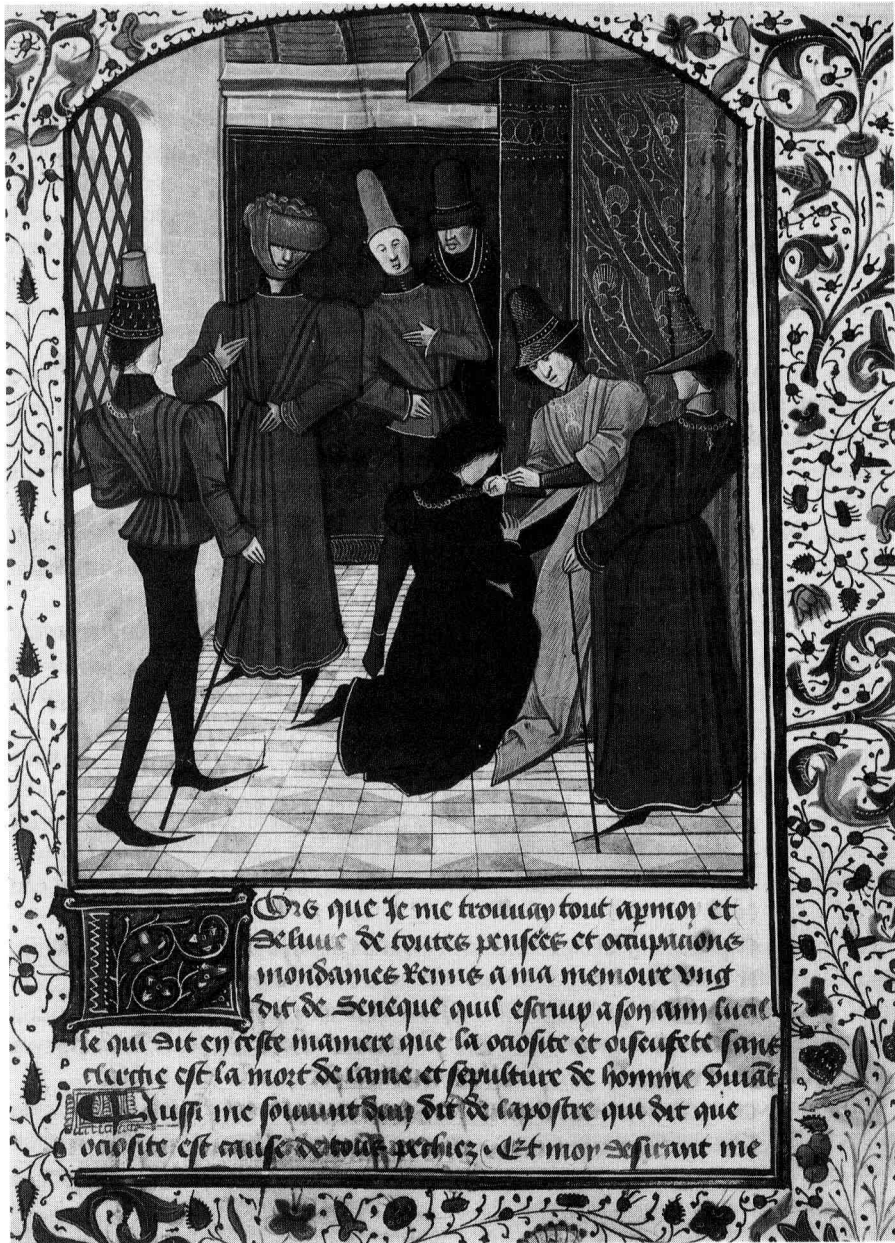 Lors que Je me trouuay tout apmoy et
deliure de toutes pensees et occupacions
mondaines Reuins a ma memoire vng
dit de Seneque quil escripu a son amy lucil
le qui dit en ceste maniere que la ociosite et oiseusete sans
clergie est la mort de lame et sepulture de homme viuāt
Aussi me souuint dun dit de lapostre qui dit que
ociosite est cause de tous pechiez . Et moy desirant me